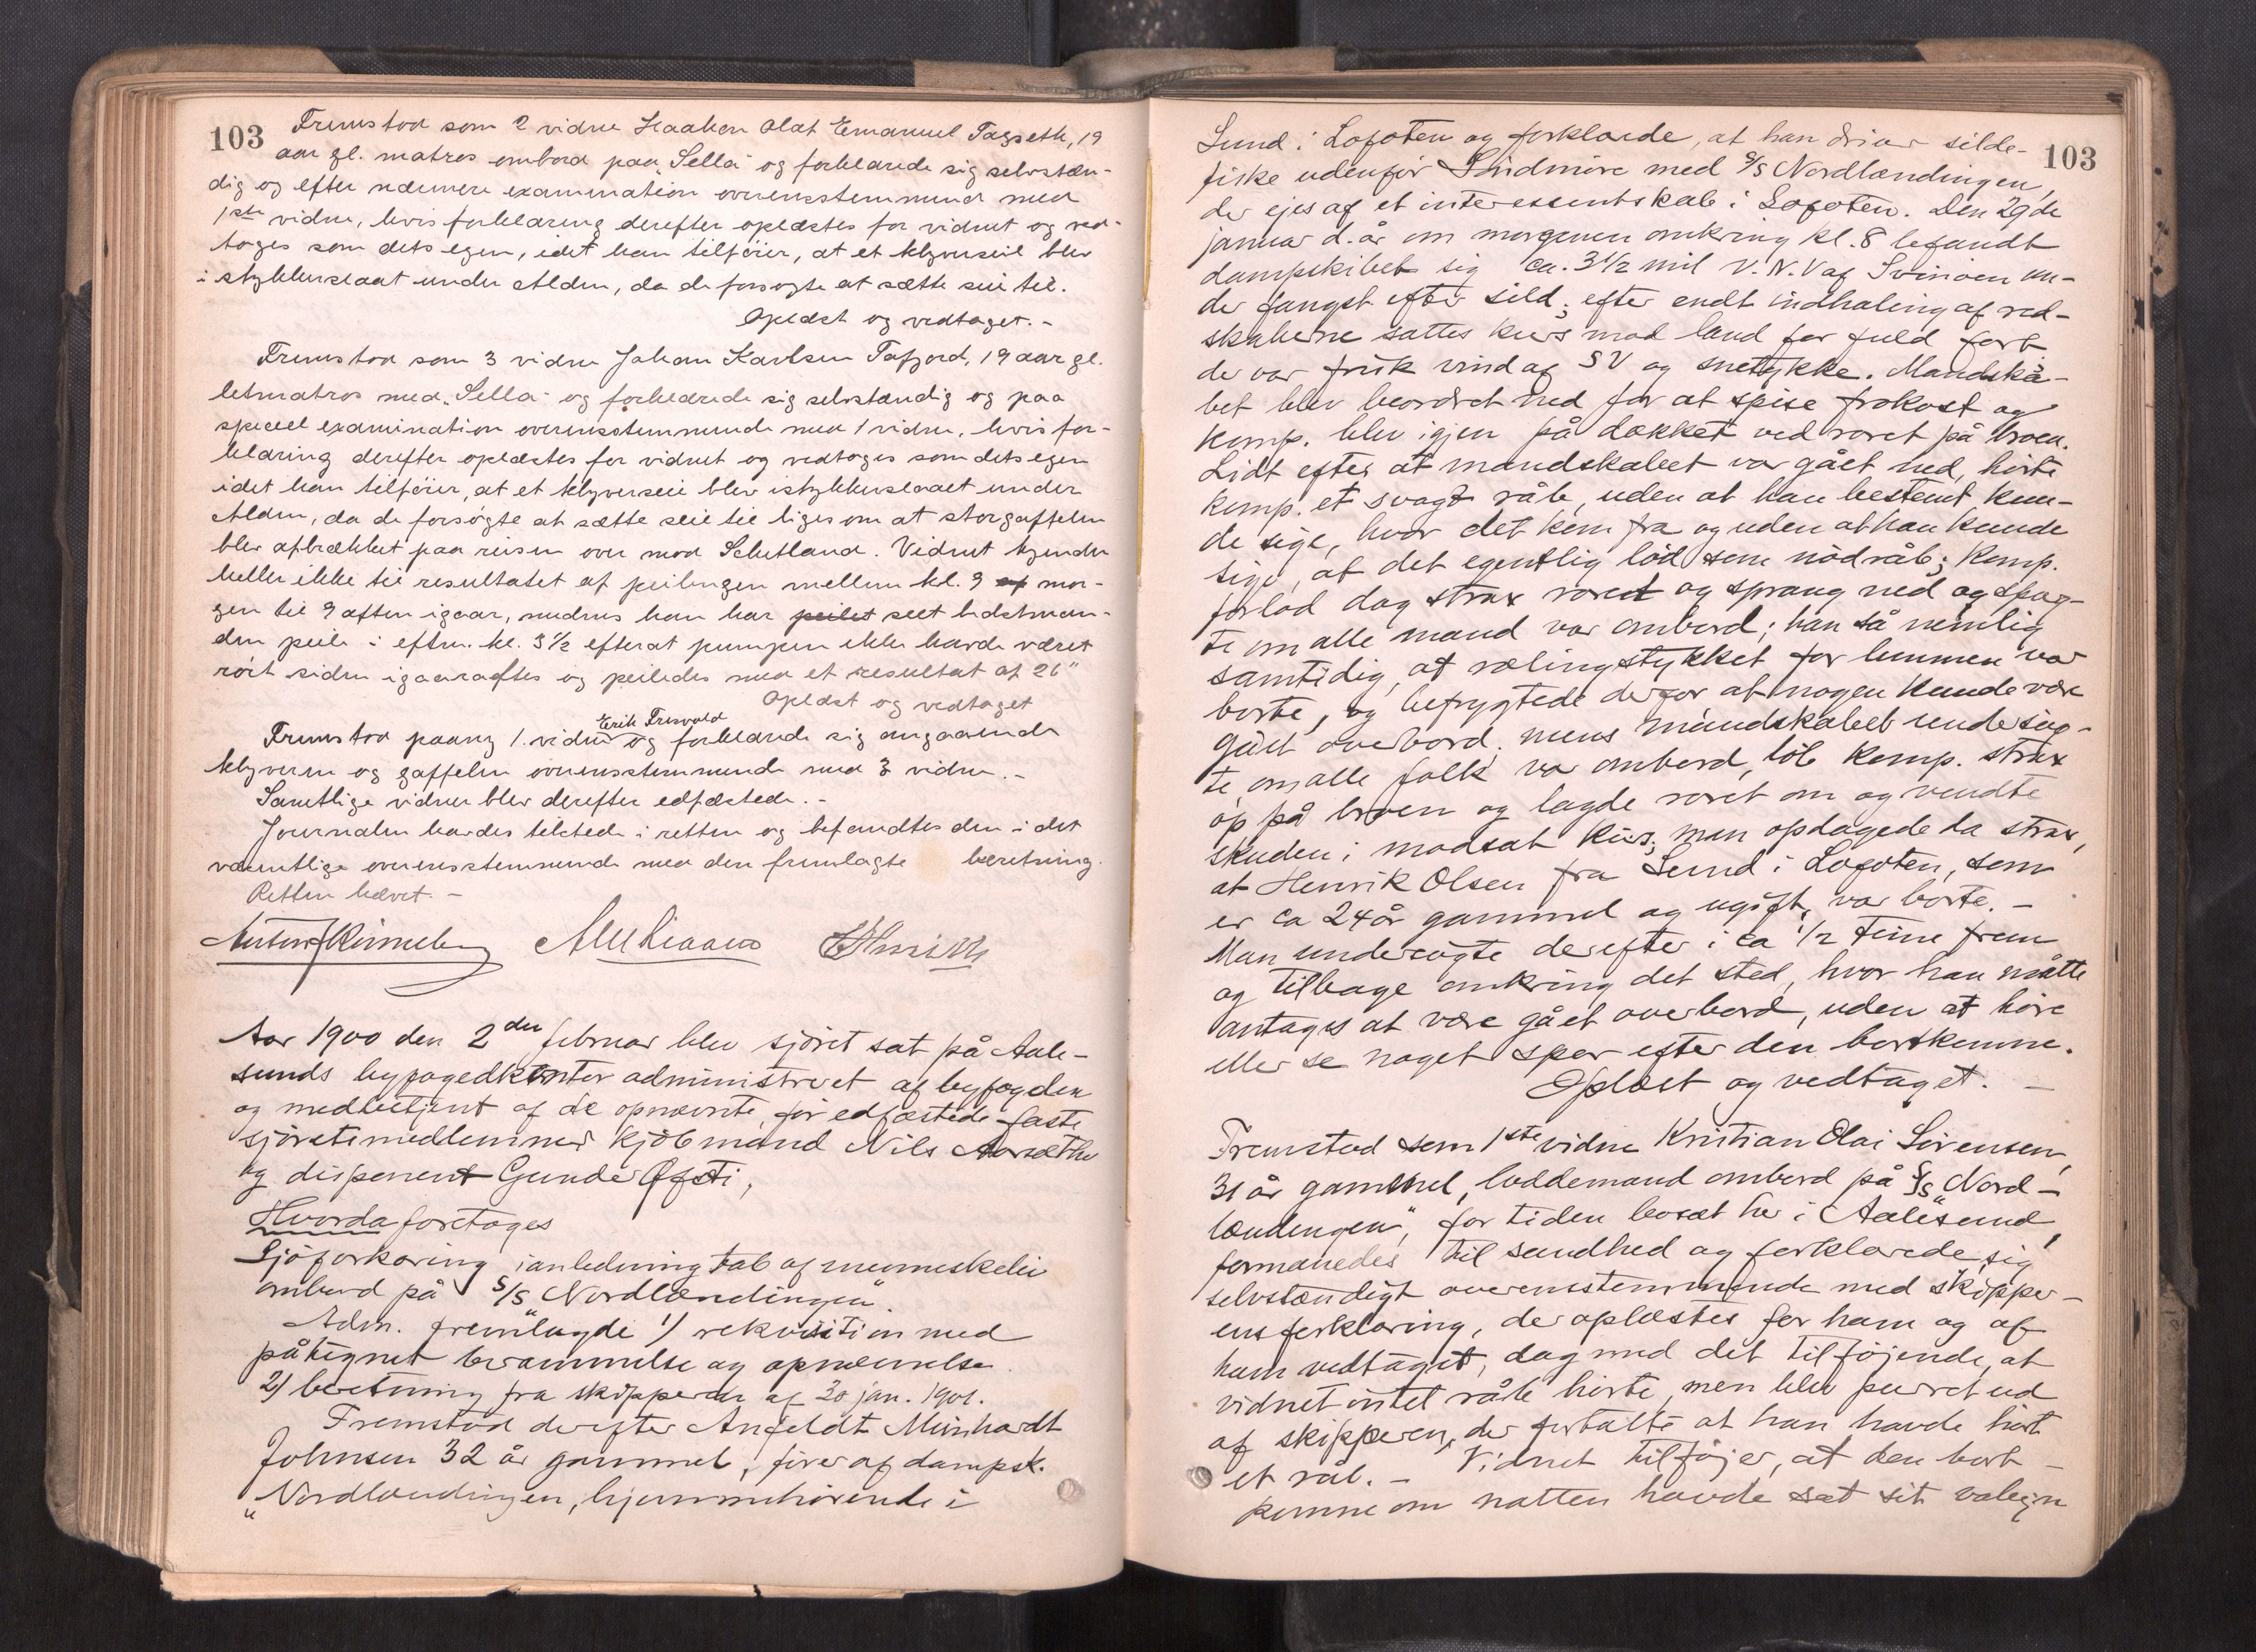 103
Fremstod som 2 vidne Haakon Olaf Emanuel Tagseth, 19
aar gl. matros ombord paa „Sella” og forklarede sig selvstæn-
dig og efter nærmere examination overensstemmend med
1ste vidne, hvis forklaring derefter oplæstes for vidnet og ved-
toges som dets egen, idet han tilföier, at et klyverseil blev
istykkerslaat under Alden, da de forsogte at sætte seil til.
Oplæst og vedtaget. -
Fremstod som 3 vidne Johan Karlsen Tafjord, 19 aar gl.
letmatros med „Sella” og forklarede sig selvstændig og paa
speciel examination overensstemmende med 1 vidne, hvis for-
klaring derefter oplæstes for vidnet og vedtoges som dets egen
idet han tilföier, at et klyverseil blev istykkerslaaet under
Alden, da de forsögte at sætte seil til ligesom at storgaffelen
blev afbrækket paa reisen over mod Schetland. Vidnet kjender
heller ikke til resultatet af peilingen mellem kl. 9 af mor-
gen til 9 aften igaar, medens han har peilet seet bedstman-
den peile i efterm. kl. 3½ efterat pumpen ikke havde været
rört siden igaaraftes og peiledes med et resultat af 26"
Oplæst og vedtaget
Erik Fresvold
Fremstod paany 1. vidne og forklarede sig angaaende
klyveren og gaffelen overensstemmende med 3 vidne. -
Samtlige vidner blev derefter edfæstede. -
Journalen havdes tilstede i retten og befandtes den i det
væsentlige overensstemmende med den fremlagte beretning.
Retten hævet. -
Aar 1900 den 2den februar blev sjöret sat på Aale-
sunds byfogedkontor administreret af byfogden
og medbetjent af de opnævnte, för edfæstede faste
sjöretsmedlemmer kjöbmand Nils Aarsæther
og disponent Gunder Ofsti,
Hvorda foretoges
Sjöforkaring i anledning tab af menneskeliv
ombord på S/S „Nordlændingen”.
Adm. fremlagde 1/ rekvisition med
påtegnet berammelse og opnævnelse.
2/ beretning fra skipperen af 30 jan. 1901.
Fremstod derefter Anfeldt Meinhardt
Johnsen 32 år gammel, förer af dampsk.
„Nordlændingen, hjemmehörende i
103
Sund i Lofoten og forklarde, at han driver silde-
fiske udenfor Söndmöre med S/S Nordlændingen,
der ejes af et interessentskab i Lofoten. Den 29de
januar d. år om morgenen omkring kl. 8 befandt
dampskibet sig ca. 3½ mil V.N.V af Svinöen un-
der fangst efter sild; efter endt indhaling af red-
skaberne sattes kurs mod land for fuld fart
der var frisk vind af SV og snetykke. Mandska-
bet blev beordret ned for at spise frokost og
komp. blev igjen på dækket ved roret på broen.
Lidt efter at mandskabet var gået ned, hörte
komp. et svagt råb, uden at han bestemt kun-
de sige, hvor det kom fra og uden at han kunde
sige, at det egentlig löd som nödråb; komp.
forlod dog strax roret og sprang ned og spurg-
te om alle mand var ombord; han så nemlig
samtidig, at rælingstykket for lemmen var
borte, og befrygtede derfor at nogen kunde være
gået overbord. mens mandskabet undersög-
te, om alle folk var ombord, löb komp. strax
op på broen og lagde roret om og vendte
skuden i modsat kurs; man opdagede da strax,
at Henrik Olsen fra Sund i Lofoten, som
er ca 24 år gammel og ugift, var borte. -
Man undersögte derefter i ca ½ time frem
og tilbage omkring det sted, hvor han måtte
antages at være gået overbord, uden at höre
eller se noget spor efter den bortkomne.
Oplæst og vedtaget. -
Fremstod som 1ste vidne Kristian Olai Sörensen,
31 år gammel, loddemand ombord på S/S „Nord-
lændingen”, for tiden bosat her i Aalesund,
formanedes til sandhed og forklarede sig
selvstændigt overensstemmende med skipper-
ens forklaring, der oplæstes for ham og af
ham vedtaget, dog med det tilföjende, at
vidnet intet råb hörte, men blev purret ud
af skipperen, der fortalte at han havde hört
et råb. - Vidnet tilföjer, at den bort-
komne om natten havde sat sit